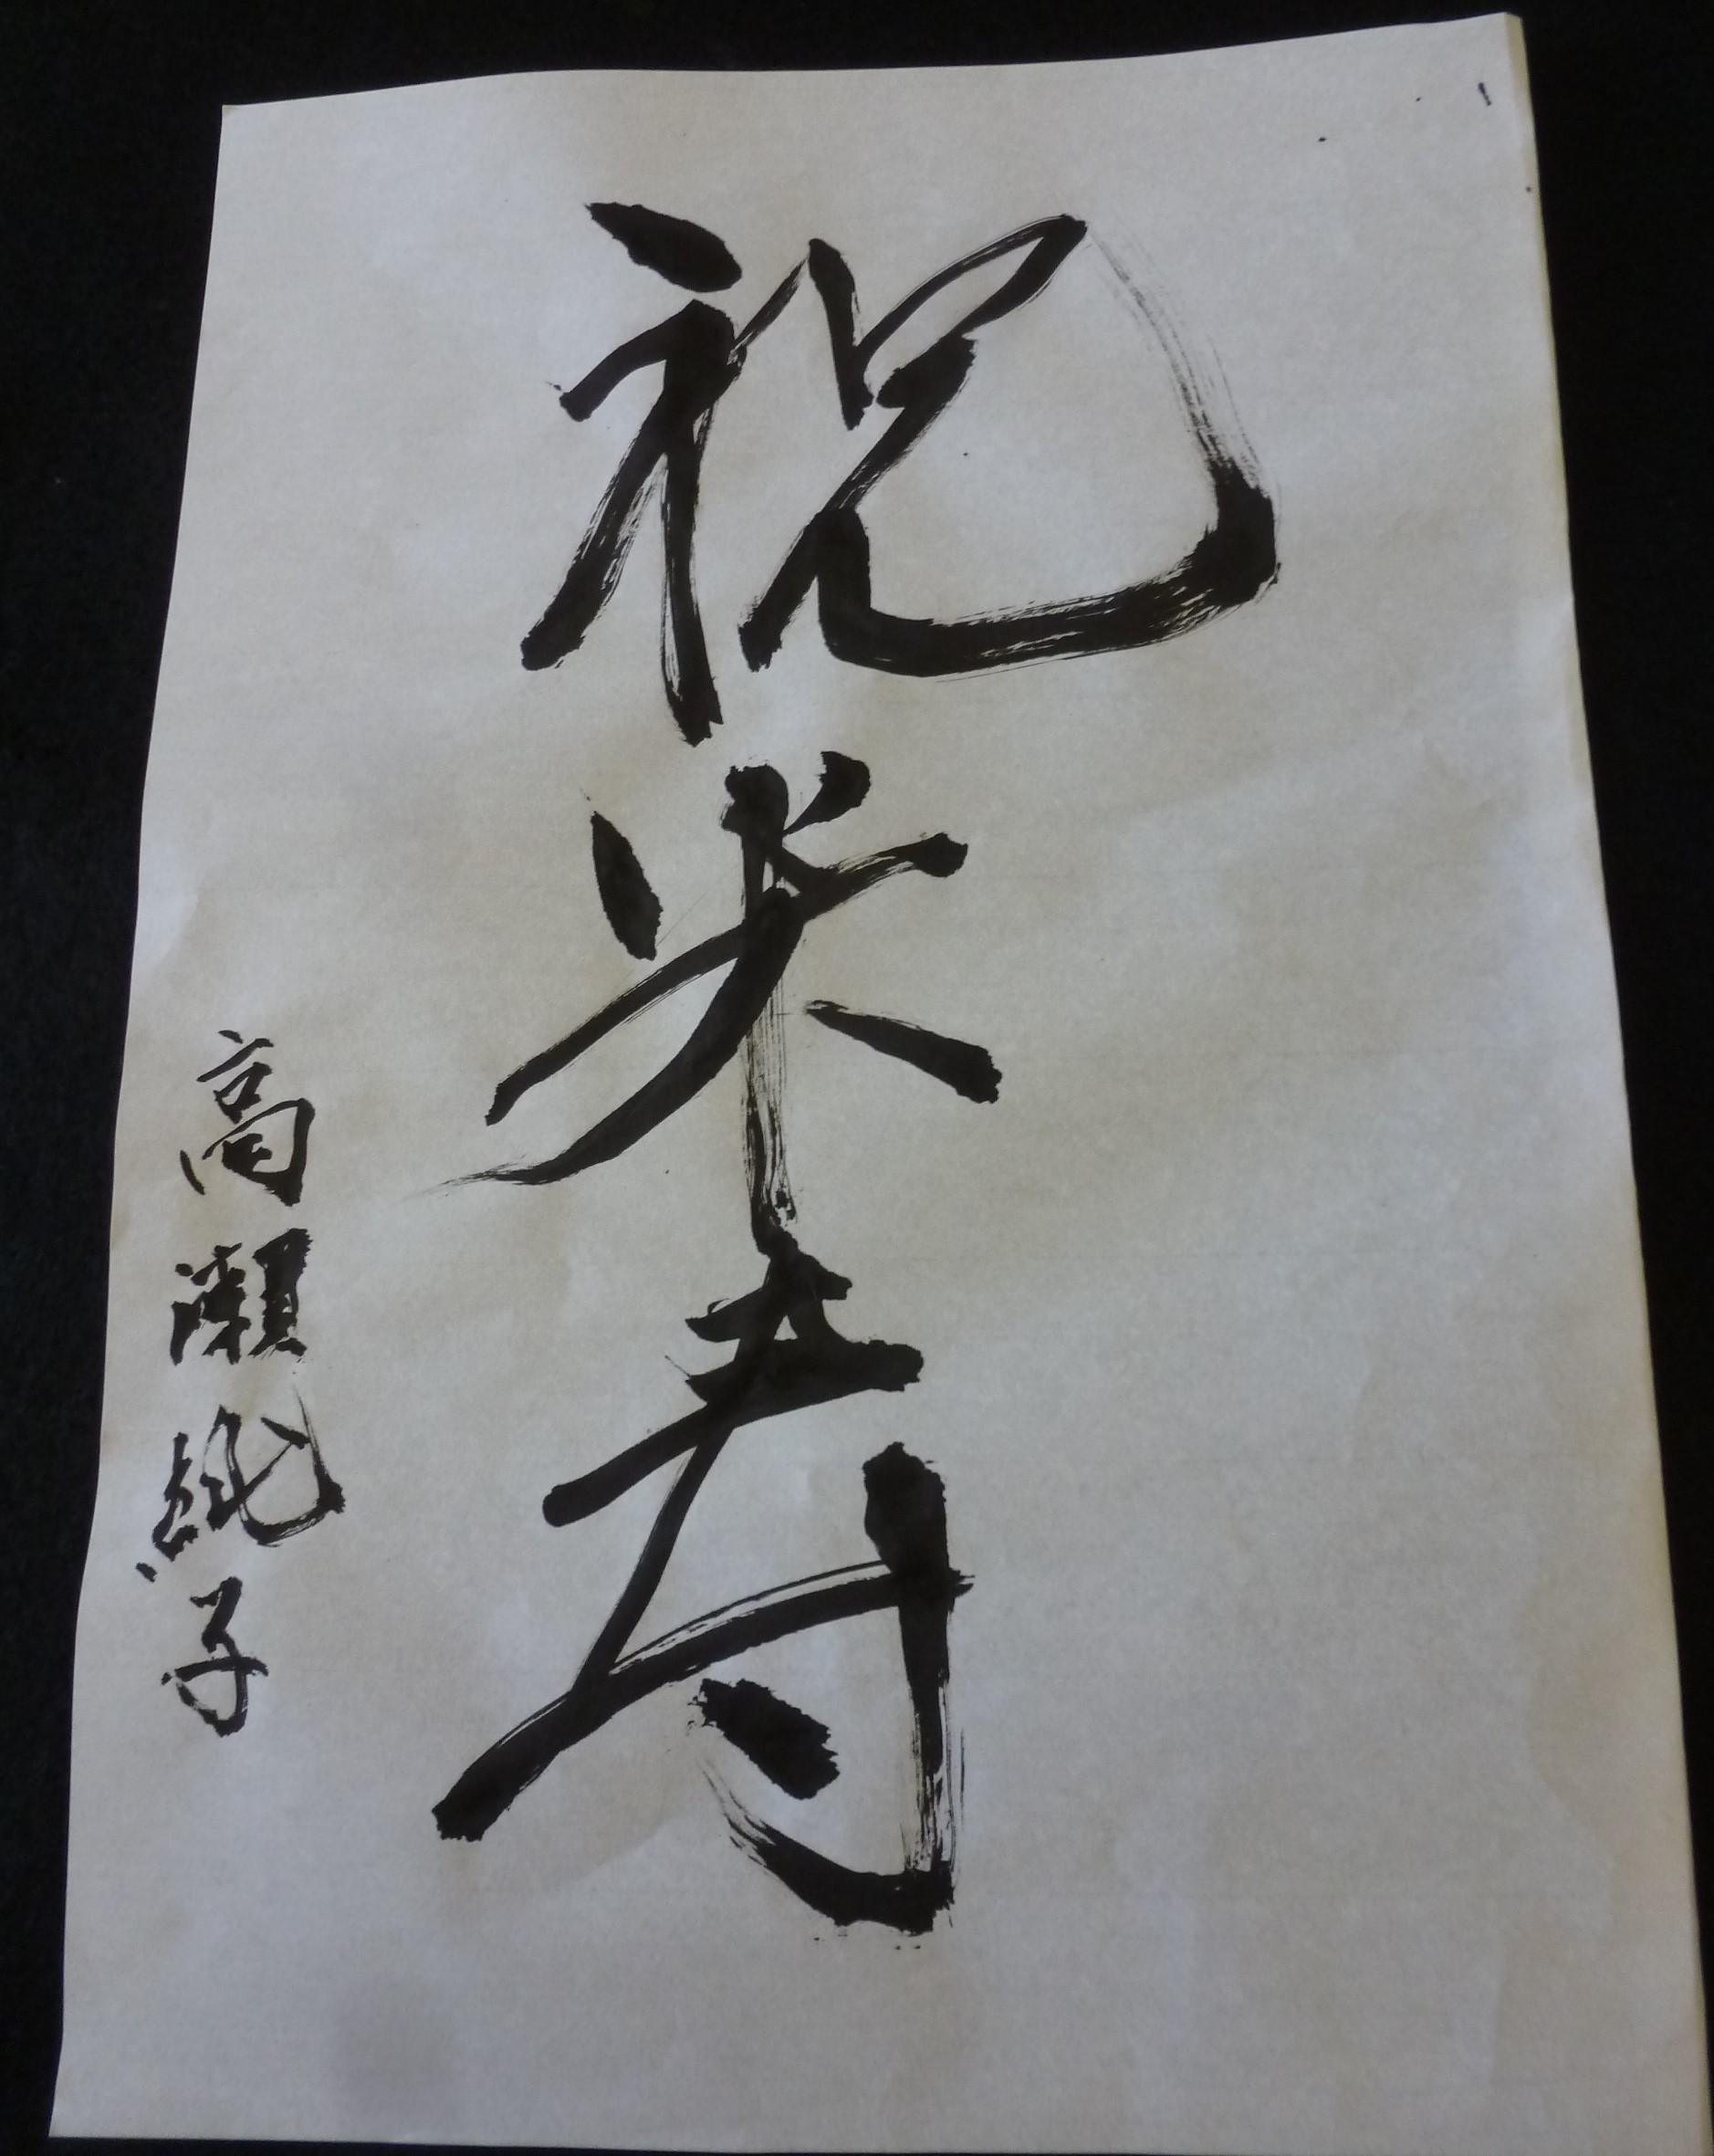 祝米寿
高瀬純子